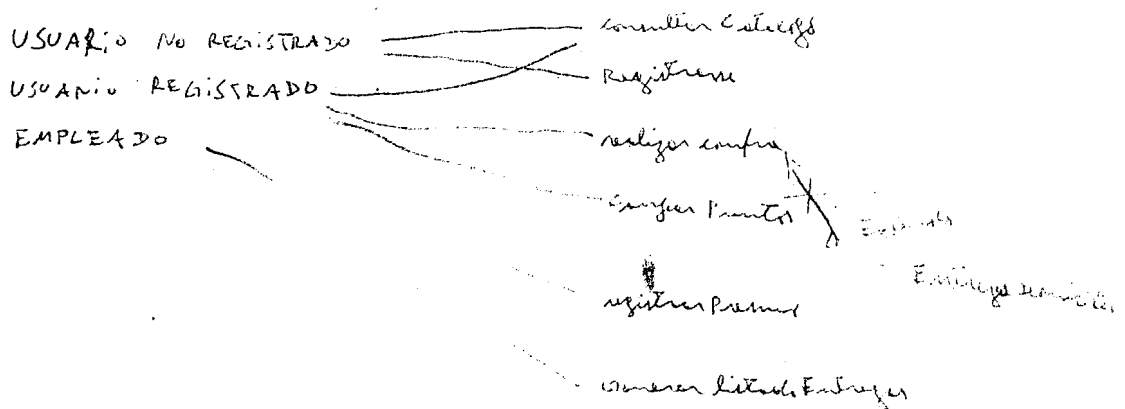 USUARIO NO REGISTRADO
USUARIO REGISTRADO
EMPLEADO
consultar Catalogo
Registrarse
realizar compra
Canjear Puntos
Entrega
registrar Premios
Generar listado Entregas